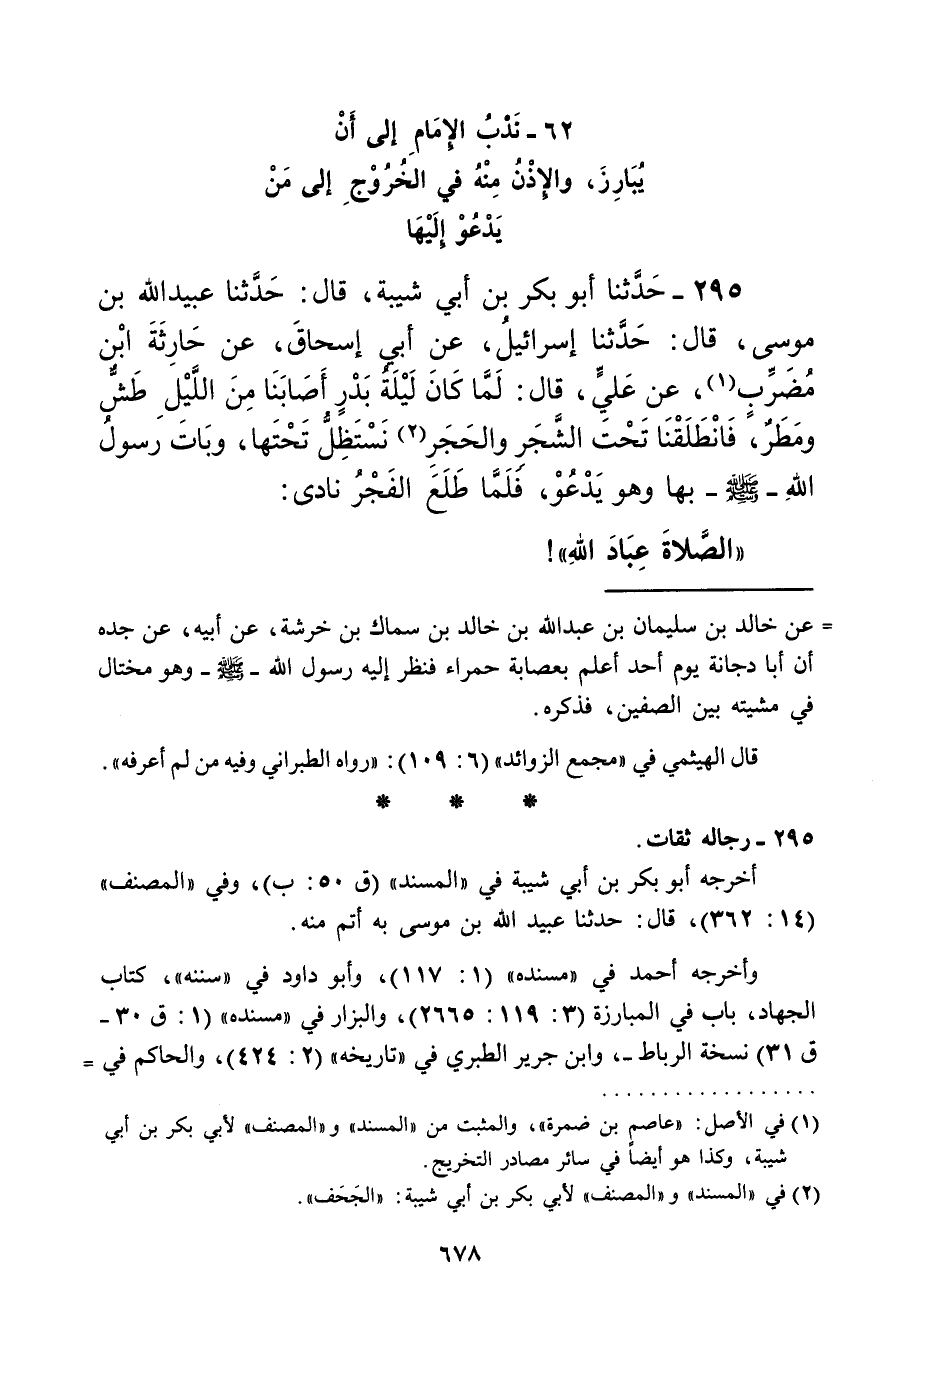 ٦٢ - نَدْبُ الإِمَامِ إلى أَنْ
يُبَارِزَ، والإِذْنُ مِنْهُ في الخُرُوْجِ إلى مَنْ
يَدْعُوْ إِلَيْهَا
٢٩٥ - حَدَّثنا أبو بكر بن أبي شيبة، قال: حَدَّثنا عبيدالله بن
موسى، قال: حَدَّثنا إسرائيلُ، عن أبي إسحاقَ، عن حَارِثَةَ ابْنِ
مُضَرِّبٍ(١)، عن عَليٍّ، قال: لَمَّا كَانَ لَيْلَةُ بَدْرٍ أَصَابَنَا مِنَ اللَّيْلِ طَشٌّ
ومَطَرٌ، فَانْطَلَقْنَا تَحْتَ الشَّجَرِ والحَجَرِ(٢) نَسْتَظِلُّ تَحْتَها، وبَاتَ رسولُ
اللهِ - ﷺ - بها وهو يَدْعُوْ، فَلَمَّا طَلَعَ الفَجْرُ نادى:
«الصَّلاةَ عِبَادَ اللهِ»!
= عن خالد بن سليمان بن عبدالله بن خالد بن سماك بن خرشة، عن أبيه، عن جده
أن أبا دجانة يوم أحد أعلم بعصابة حمراء فنظر إليه رسول الله - ﷺ - وهو مختال
في مشيته بين الصفين، فذكره.
قال الهيثمي في «مجمع الزوائد» (٦: ١٠٩): «رواه الطبراني وفيه من لم أعرفه».
* * *
٢٩٥ - رجاله ثقات.
أخرجه أبو بكر بن أبي شيبة في «المسند» (ق ٥٠: ب)، وفي «المصنف»
(١٤: ٣٦٢)، قال: حدثنا عبيد الله بن موسى به أتم منه.
وأخرجه أحمد في «مسنده» (١: ١١٧)، وأبو داود في «سننه»، كتاب
الجهاد، باب في المبارزة (٣: ١١٩: ٢٦٦٥)، والبزار في «مسنده» (١: ق ٣٠ -
ق ٣١) نسخة الرباط -، وابن جرير الطبري في «تاريخه» (٢: ٤٢٤)، والحاكم في =
(١) في الأصل: «عاصم بن ضمرة»، والمثبت من «المسند» و«المصنف» لأبي بكر بن أبي
شيبة، وكذا هو أيضاً في سائر مصادر التخريج.
(٢) في «المسند» و«المصنف» لأبي بكر بن أبي شيبة: «الجَحَف».
٦٧٨